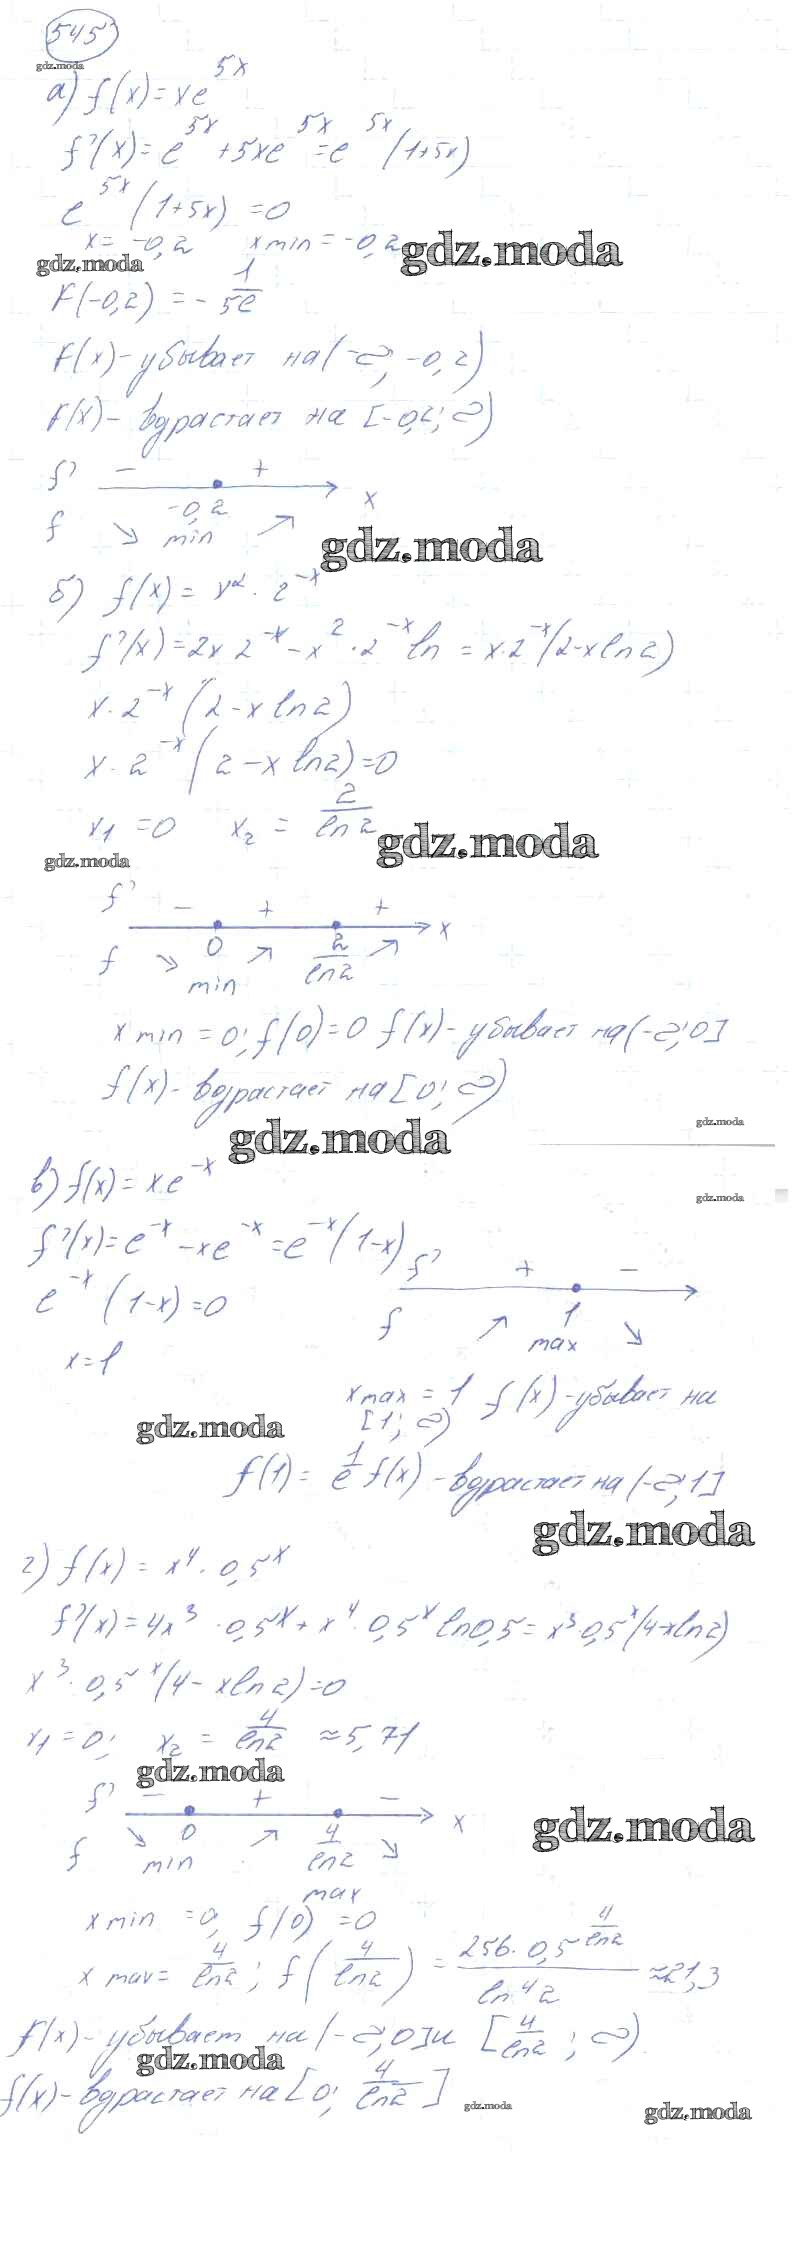 545
gdz.moda
а) f(x)=xe^5x
f'(x)=e^5x+5xe^5x=e^5x(1+5x)
e^5x(1+5x)=0
x=-0,2 x min=-0,2
gdz.moda
gdz.moda
F(-0,2)=-1/5e
F(x)-убывает на(-∞,-0,2)
F(x)-вдрастает на [-0,2;∞)
f' - +
-0,2 x
f ↘ min ↗
gdz.moda
б) f(x)=x²·2^-x
f'(x)=2x 2^-x-x²·2^-x ln=x·2^-x(2-xln2)
x·2^-x(2-xln2)
x·2^-x(2-xln2)=0
x₁=0 x₂=2/ln2
gdz.moda
gdz.moda
f' - + +
0 2/ln2 x
f ↘ min ↗ ↗
x min=0; f(0)=0 f(x)-убывает на(-∞;0]
f(x)-возрастает на[0;∞)
gdz.moda
gdz.moda
в) f(x)=x e^-x
gdz.moda
f'(x)=e^-x-xe^-x=e^-x(1-x)
e^-x(1-x)=0
x=1
f' + -
1
f ↗ max ↘
x max=1 f(x)-убывает на
[1;∞)
gdz.moda
f(1)=1/e f(x)-вдрастает на(-∞;1]
gdz.moda
г) f(x)=x⁴·0,5^x
f'(x)=4x³·0,5^x+x⁴·0,5^x ln0,5=x³0,5^x(4-xln2)
x³·0,5^x(4-xln2)=0
x₁=0; x₂=4/ln2≈5,71
gdz.moda
f' - + -
0 4/ln2 x
gdz.moda
f ↘ min ↗ max ↘
x min=0, f(0)=0
x max=4/ln2; f(4/ln2)=256·0,5^4/ln2/ln⁴2≈21,3
f(x)-убывает на(-∞,0]и[4/ln2;∞)
gdz.moda
f(x)-вдрастает на[0;4/ln2]
gdz.moda
gdz.moda